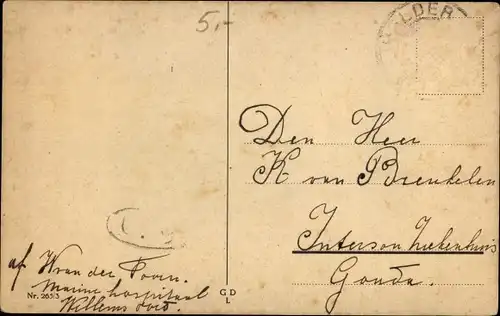 5,-
HELDER
Den Heer
K van Breukelen
Interson Ziekenhuis
Gouda.
af W van der Toorn.
Marine hospitaal
Willemsoord.
Nr. 265/3
G D
L